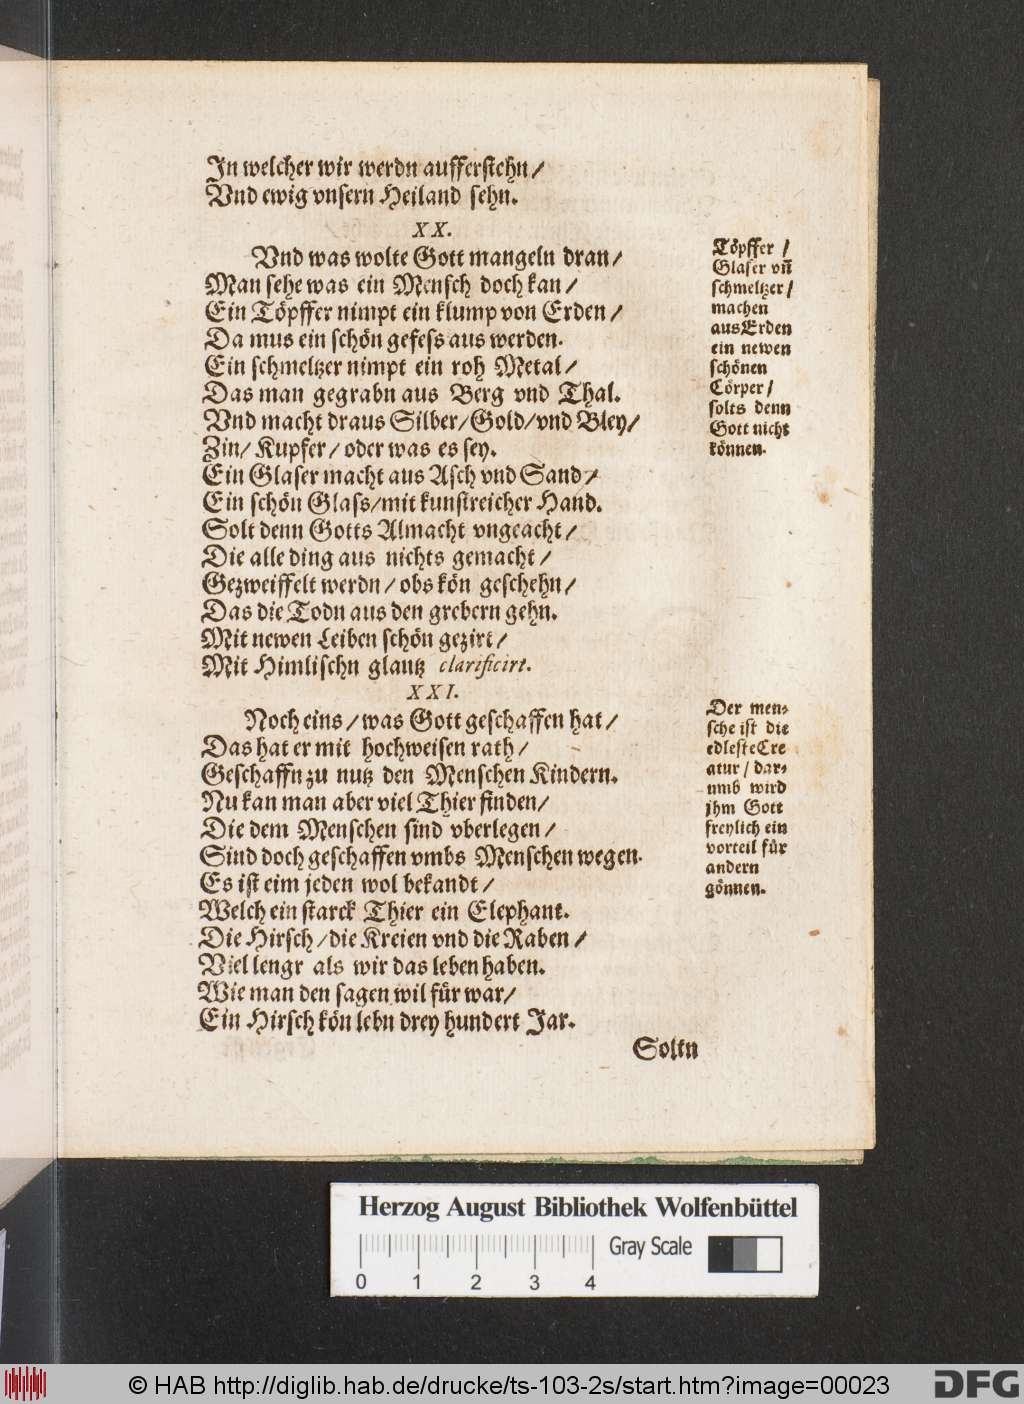 In welcher wir werdn aufferstehn /
Vnd ewig vnsern Heiland sehn.
XX.
Vnd was wolte Gott mangeln dran /
Man sehe was ein Mensch doch kan /
Ein Töpffer nimpt ein klump von Erden /
Da mus ein schön gefess aus werden.
Ein schmeltzer nimpt ein roh Metal /
Das man gegrabn aus Berg vnd Thal.
Vnd macht draus Silber / Gold / vnd Bley /
Zin / Kupfer / oder was es sey.
Ein Glaser macht aus Asch vnd Sand /
Ein schön Glass / mit kunstreicher Hand.
Solt denn Gotts Almacht vngeacht /
Die alle ding aus nichts gemacht /
Gezweiffelt werdn / obs kön geschehn /
Das die Todn aus den grebern gehn.
Mit newen Leiben schön gezirt /
Mit Himlischn glantz clarificirt.
XXI.
Noch eins / was Gott geschaffen hat /
Das hat er mit hochweisen rath /
Geschaffn zu nutz den Menschen Kindern.
Nu kan man aber viel Thier finden /
Die dem Menschen sind vberlegen /
Sind doch geschaffen vmbs Menschen wegen.
Es ist eim jeden wol bekandt /
Welch ein starck Thier ein Elephant.
Die Hirsch / die Kreien vnd die Raben /
Viel lengr als wir das leben haben.
Wie man den sagen wil für war /
Ein Hirsch kön lebn drey hundert Jar.
Soltn
Töpffer /
Glaser vn̄
schmeltzer /
machen
aus Erden
ein newen
schönen
Cörper /
solts denn
Gott nicht
können.
Der men⸗
sche ist die
edleste Cre
atur / dar⸗
umb wird
jhm Gott
freylich ein
vorteil für
andern
gönnen.
Herzog August Bibliothek Wolfenbüttel
0 1 2 3 4
Gray Scale
© HAB http://diglib.hab.de/drucke/ts-103-2s/start.htm?image=00023
DFG